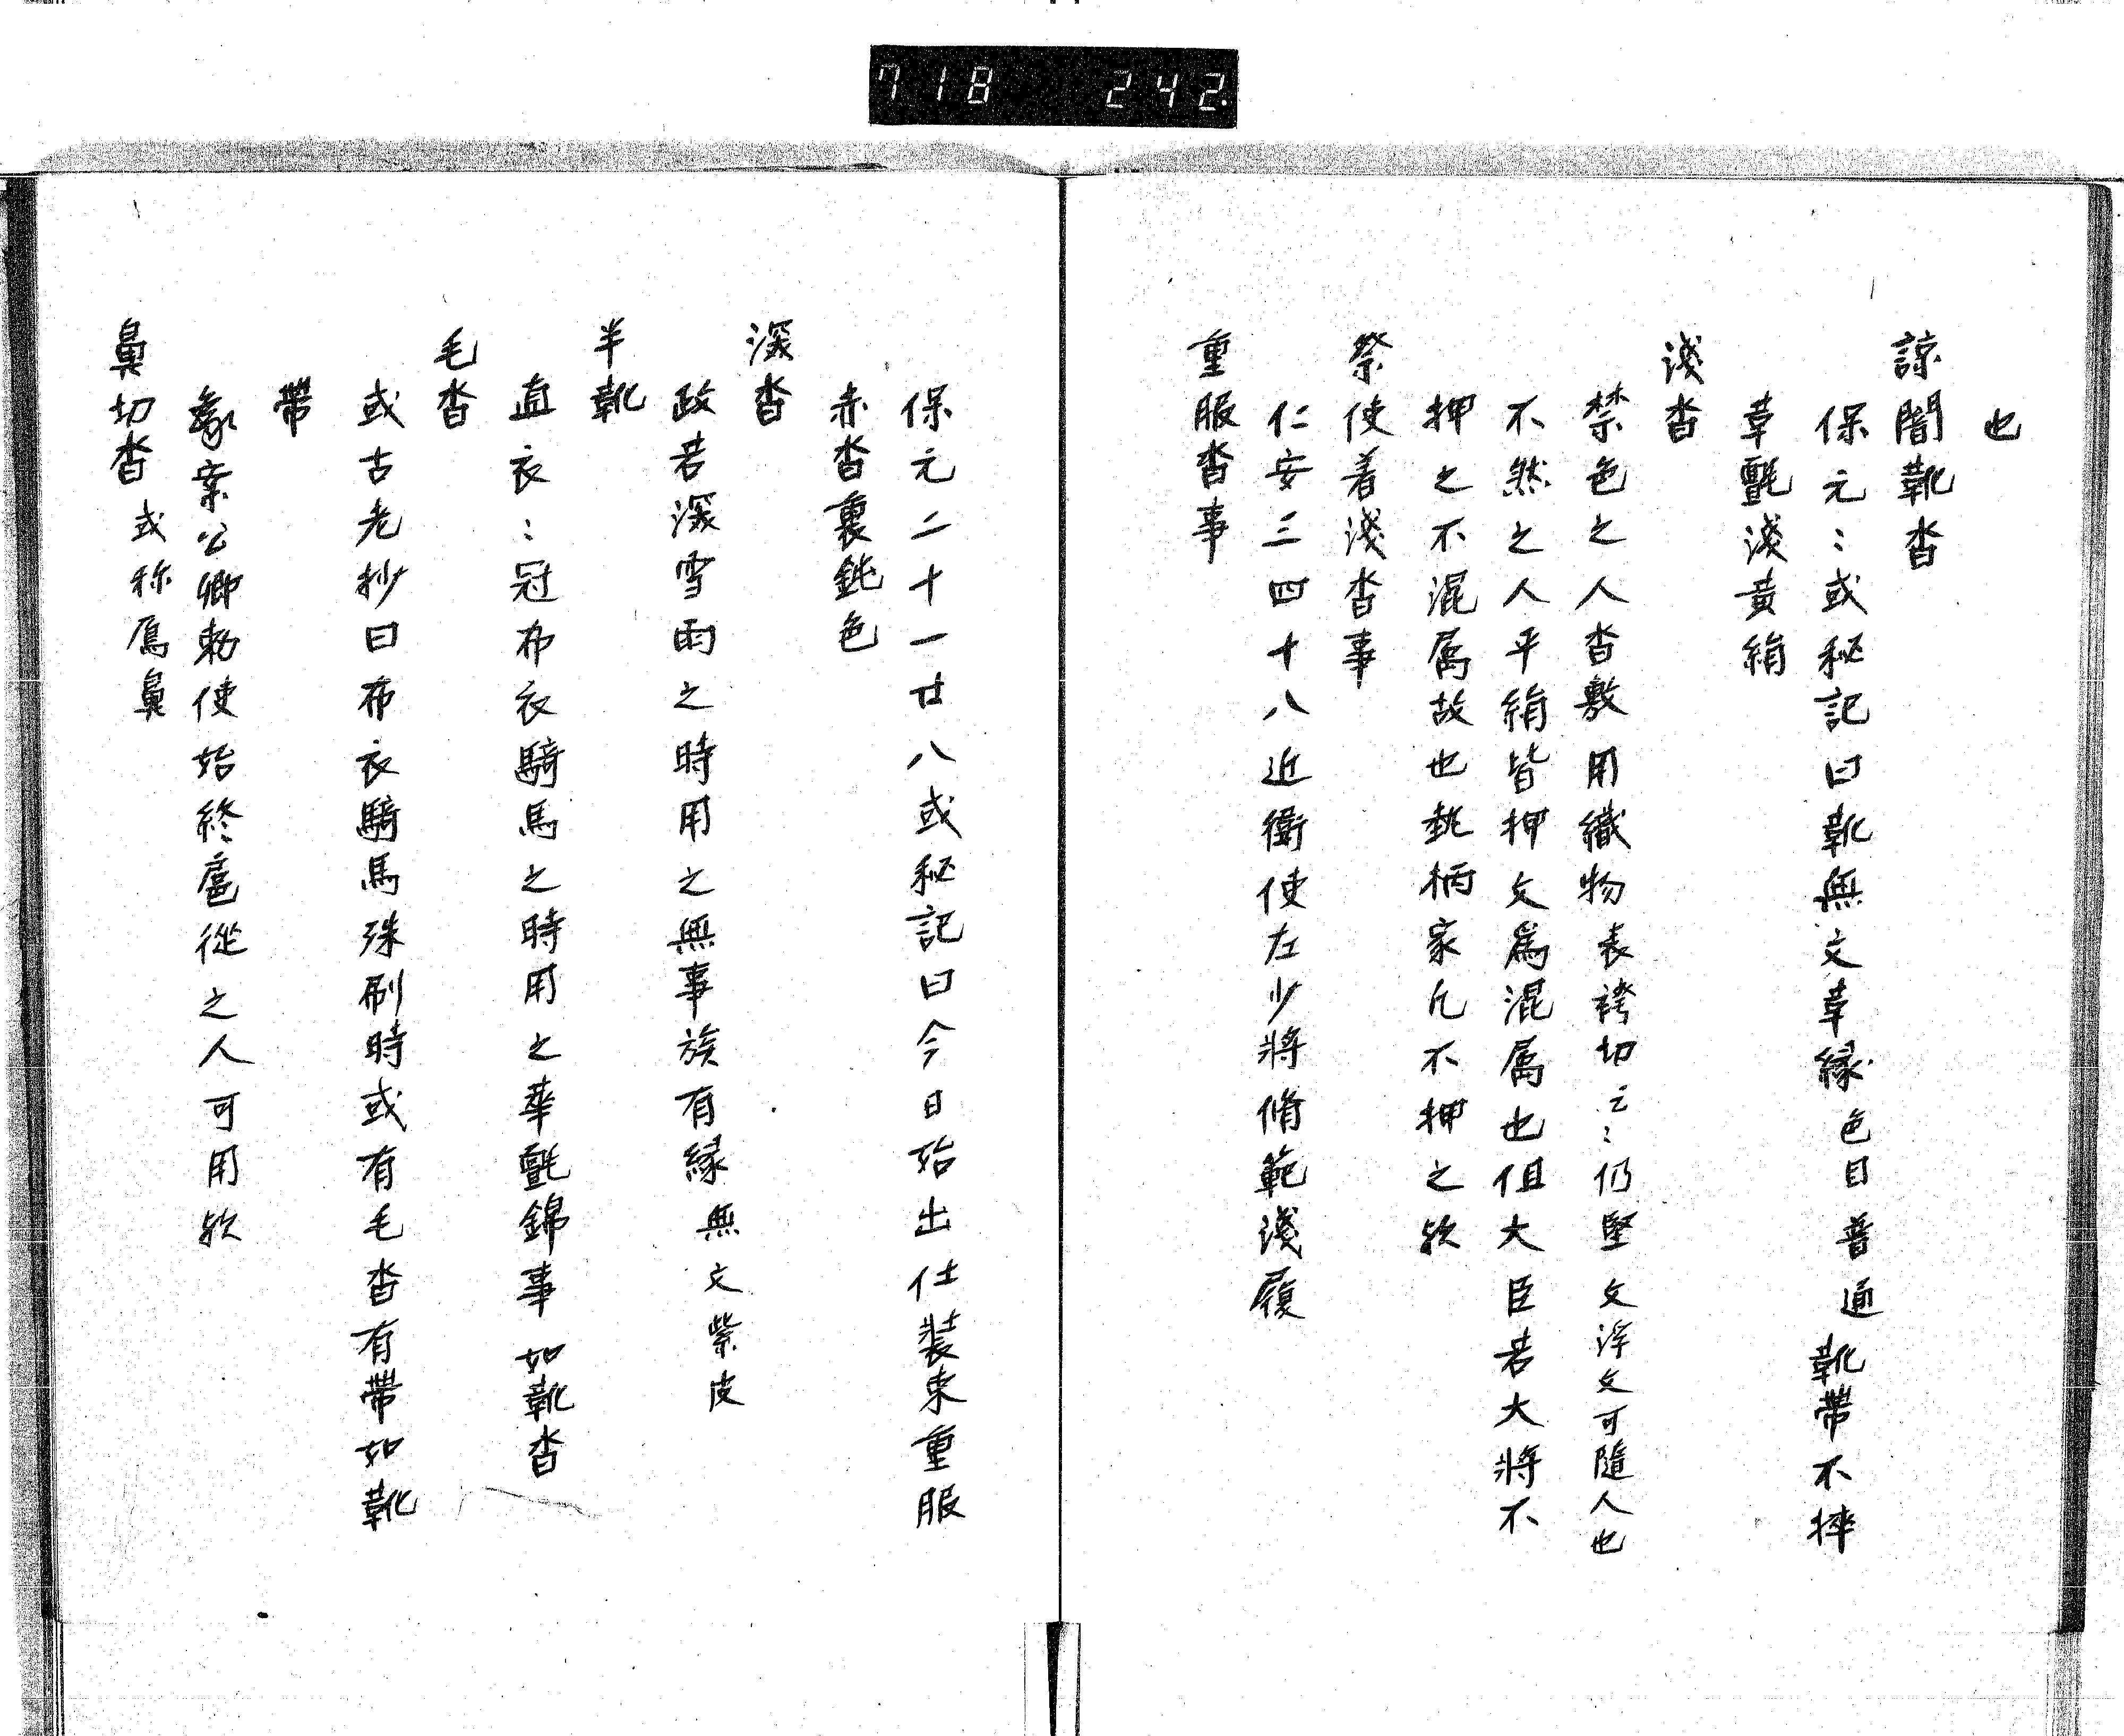 718 242.
也
諒闇靴沓
保元〻或秘記曰靴無文革縁色目普通靴帶不押
革氈淺黄絹
淺沓
禁色之人沓敷用織物表袴切云〻仍堅文浮文可隨人也
不然之人平絹皆押文爲混属也但大臣若大將不
押之不混属故也執柄家凡不押之欤
祭使着淺沓事
仁安三四十八近衛使左少將脩範淺履
重服沓事
保元二十一廿八或秘記曰今日始出仕裝束重服
赤沓裏鈍色
深沓
政若深雪雨之時用之無事族有縁無文紫皮
半靴
直衣〻冠布衣騎馬之時用之華氈錦事如靴沓
毛沓
或古老抄曰布衣騎馬殊刷時或有毛沓有帶如靴
帶
象案公卿勅使始終扈從之人可用欤
鼻切沓或称鴈鼻